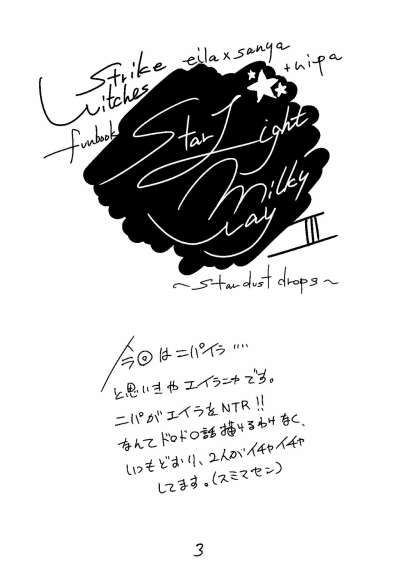 Strike
Witches
eila×sanya
+nipa
funbook
Star Light
Milky
Way
III
~stardust drops~
今回はニパイラ……
と思いきやエイラーニャです。
ニパがエイラをNTR!!
なんてドロドロ話描けるわけなく、
いつもどおり、2人がイチャイチャ
してます。(スミマセン)
3